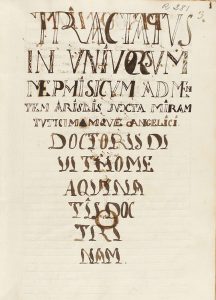 TRACTATUS
IN UNIVERSUM
NEPMISICUM ADMEN
TEM ARISDIS JUCTA MIRAM
ANGELICI
DOCTORIS DI
UI THOME
AQUINA
TIS DOC
TRI
NAM.